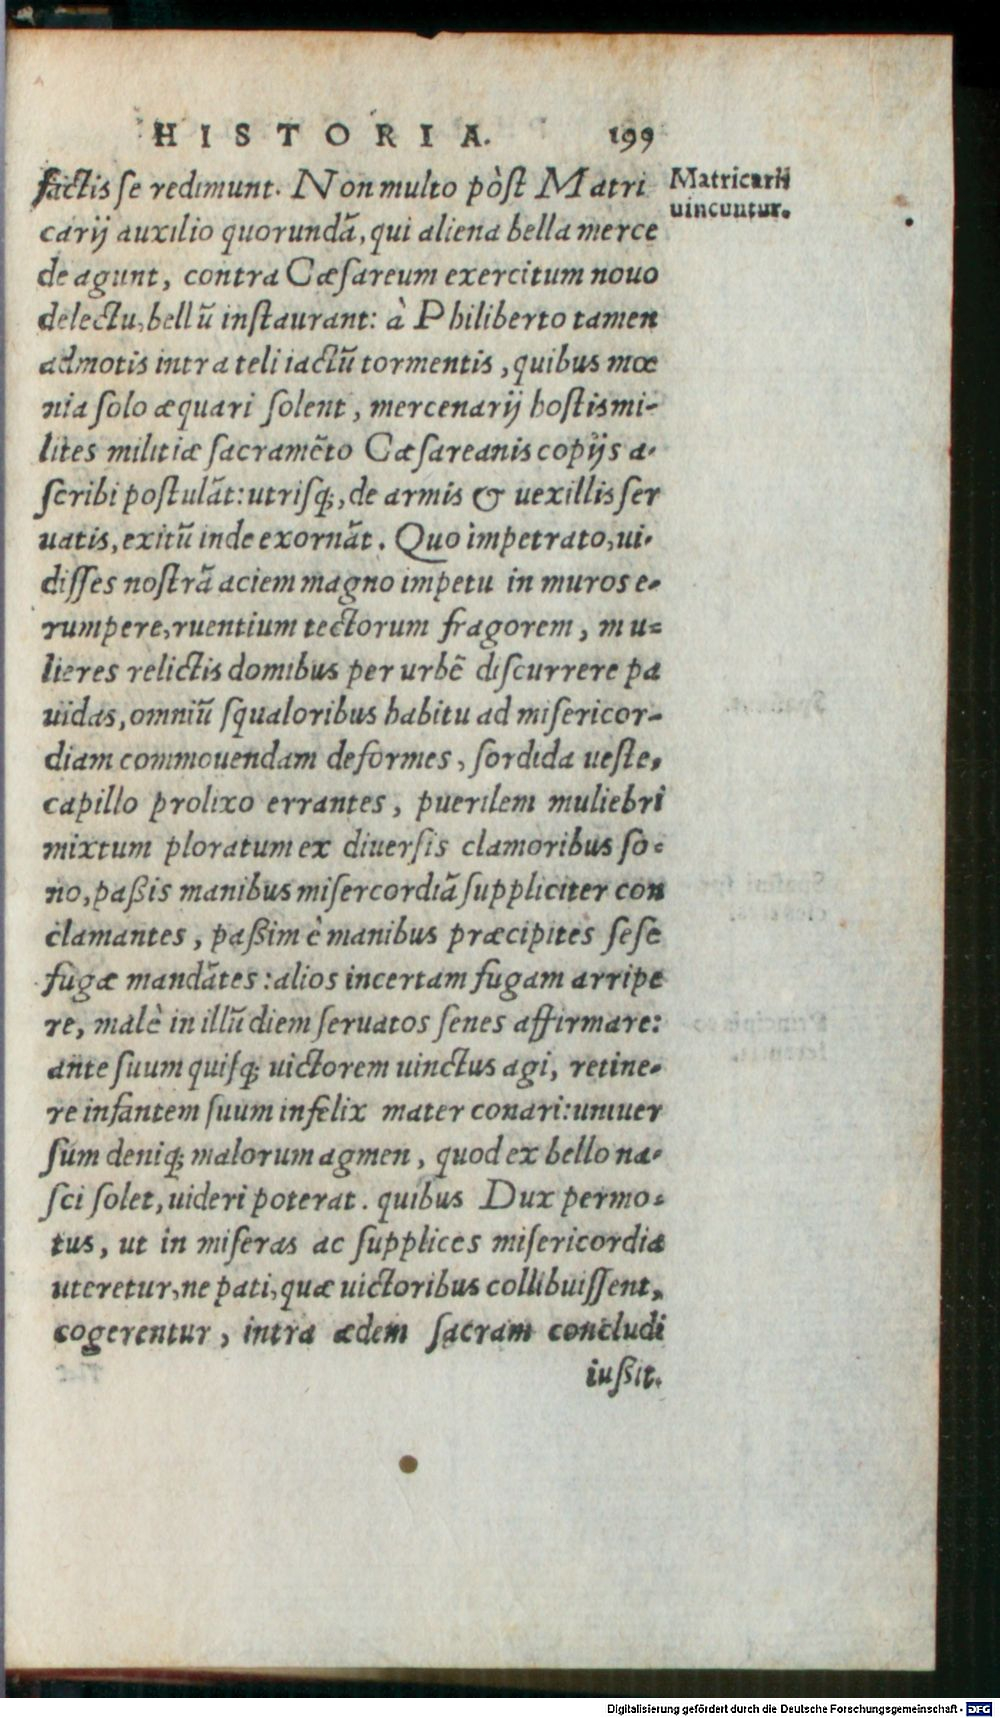 HISTORIA. 199
factis se redimunt. Non multo pòst Matri
Matricarii
uincuntur.
carij auxilio quorundã, qui aliena bella merce
de agunt, contra Cæsareum exercitum nouo
delectu, bellũ instaurant: à Philiberto tamen
admotis intra teli iactũ tormentis, quibus mœ
nia solo æquari solent, mercenarij hostis mi-
lites militiæ sacramẽto Cæsareanis copijs a-
scribi postulãt: utrisq;, de armis & uexillis ser
uatis, exitũ inde exornãt. Quo impetrato, ui-
disses nostrã aciem magno impetu in muros e-
rumpere, ruentium tectorum fragorem, mu-
lieres relictis domibus per urbẽ discurrere pa
uidas, omniũ squaloribus habitu ad misericor-
diam commouendam deformes, sordida ueste,
capillo prolixo errantes, puerilem muliebri
mixtum ploratum ex diuersis clamoribus so-
no, paßis manibus misercordiã suppliciter con
clamantes, paßim è manibus præcipites sese
fugæ mandãtes: alios incertam fugam arripe
re, malè in illũ diem seruatos senes affirmare:
ante suum quisq; uictorem uinctus agi, retine-
re infantem suum infelix mater conari: uniuer
sum deniq; malorum agmen, quod ex bello na-
sci solet, uideri poterat. quibus Dux permo-
tus, ut in miseras ac supplices misericordia
uteretur, ne pati, quæ uictoribus collibuissent,
cogerentur, intra ædem sacram concludi
iußit.
Digitalisierung gefördert durch die Deutsche Forschungsgemeinschaft - DFG